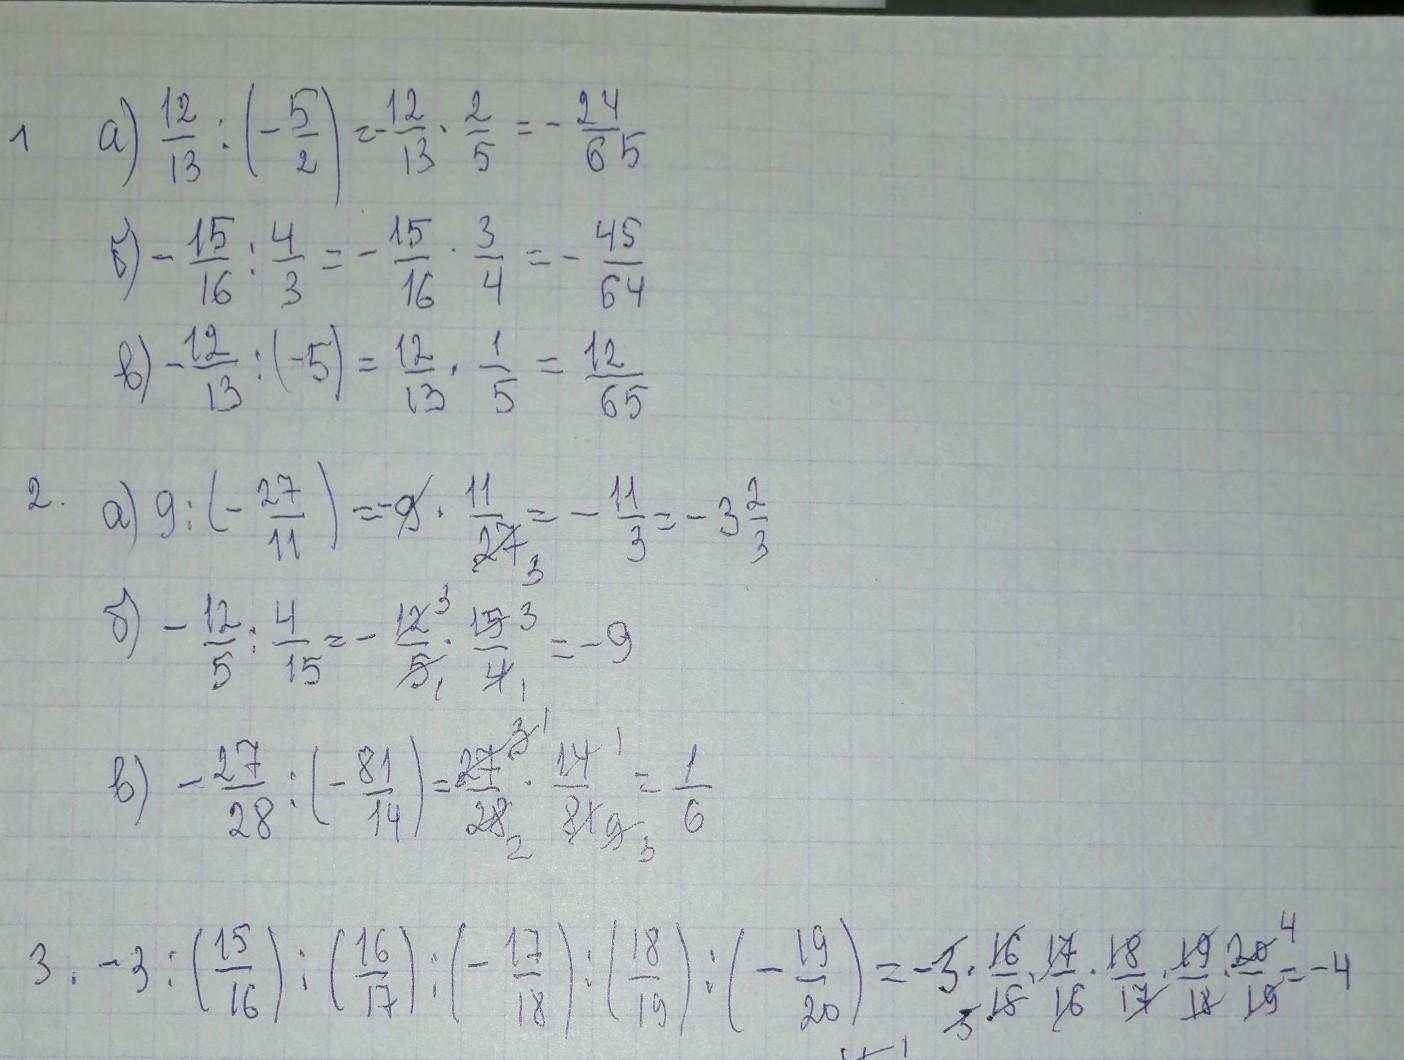 1 а) 12/13 : (-5/2) = -12/13 · 2/5 = -24/65
б) -15/16 : 4/3 = -15/16 · 3/4 = -45/64
в) -12/13 : (-5) = 12/13 · 1/5 = 12/65
2. а) 9 : (-27/11) = -9 · 11/27 3 = -11/3 = -3 2/3
б) -12/5 : 4/15 = -12 3/5 1 · 15 3/4 1 = -9
в) -27/28 : (-81/14) = 27 3 1/28 2 · 14 1/81 9 3 = 1/6
3. -3 : (15/16) : (16/17) : (-17/18) : (18/19) : (-19/20) = -3 · 16/15 5 · 17/16 · 18/17 · 19/18 · 20 4/19 = -4